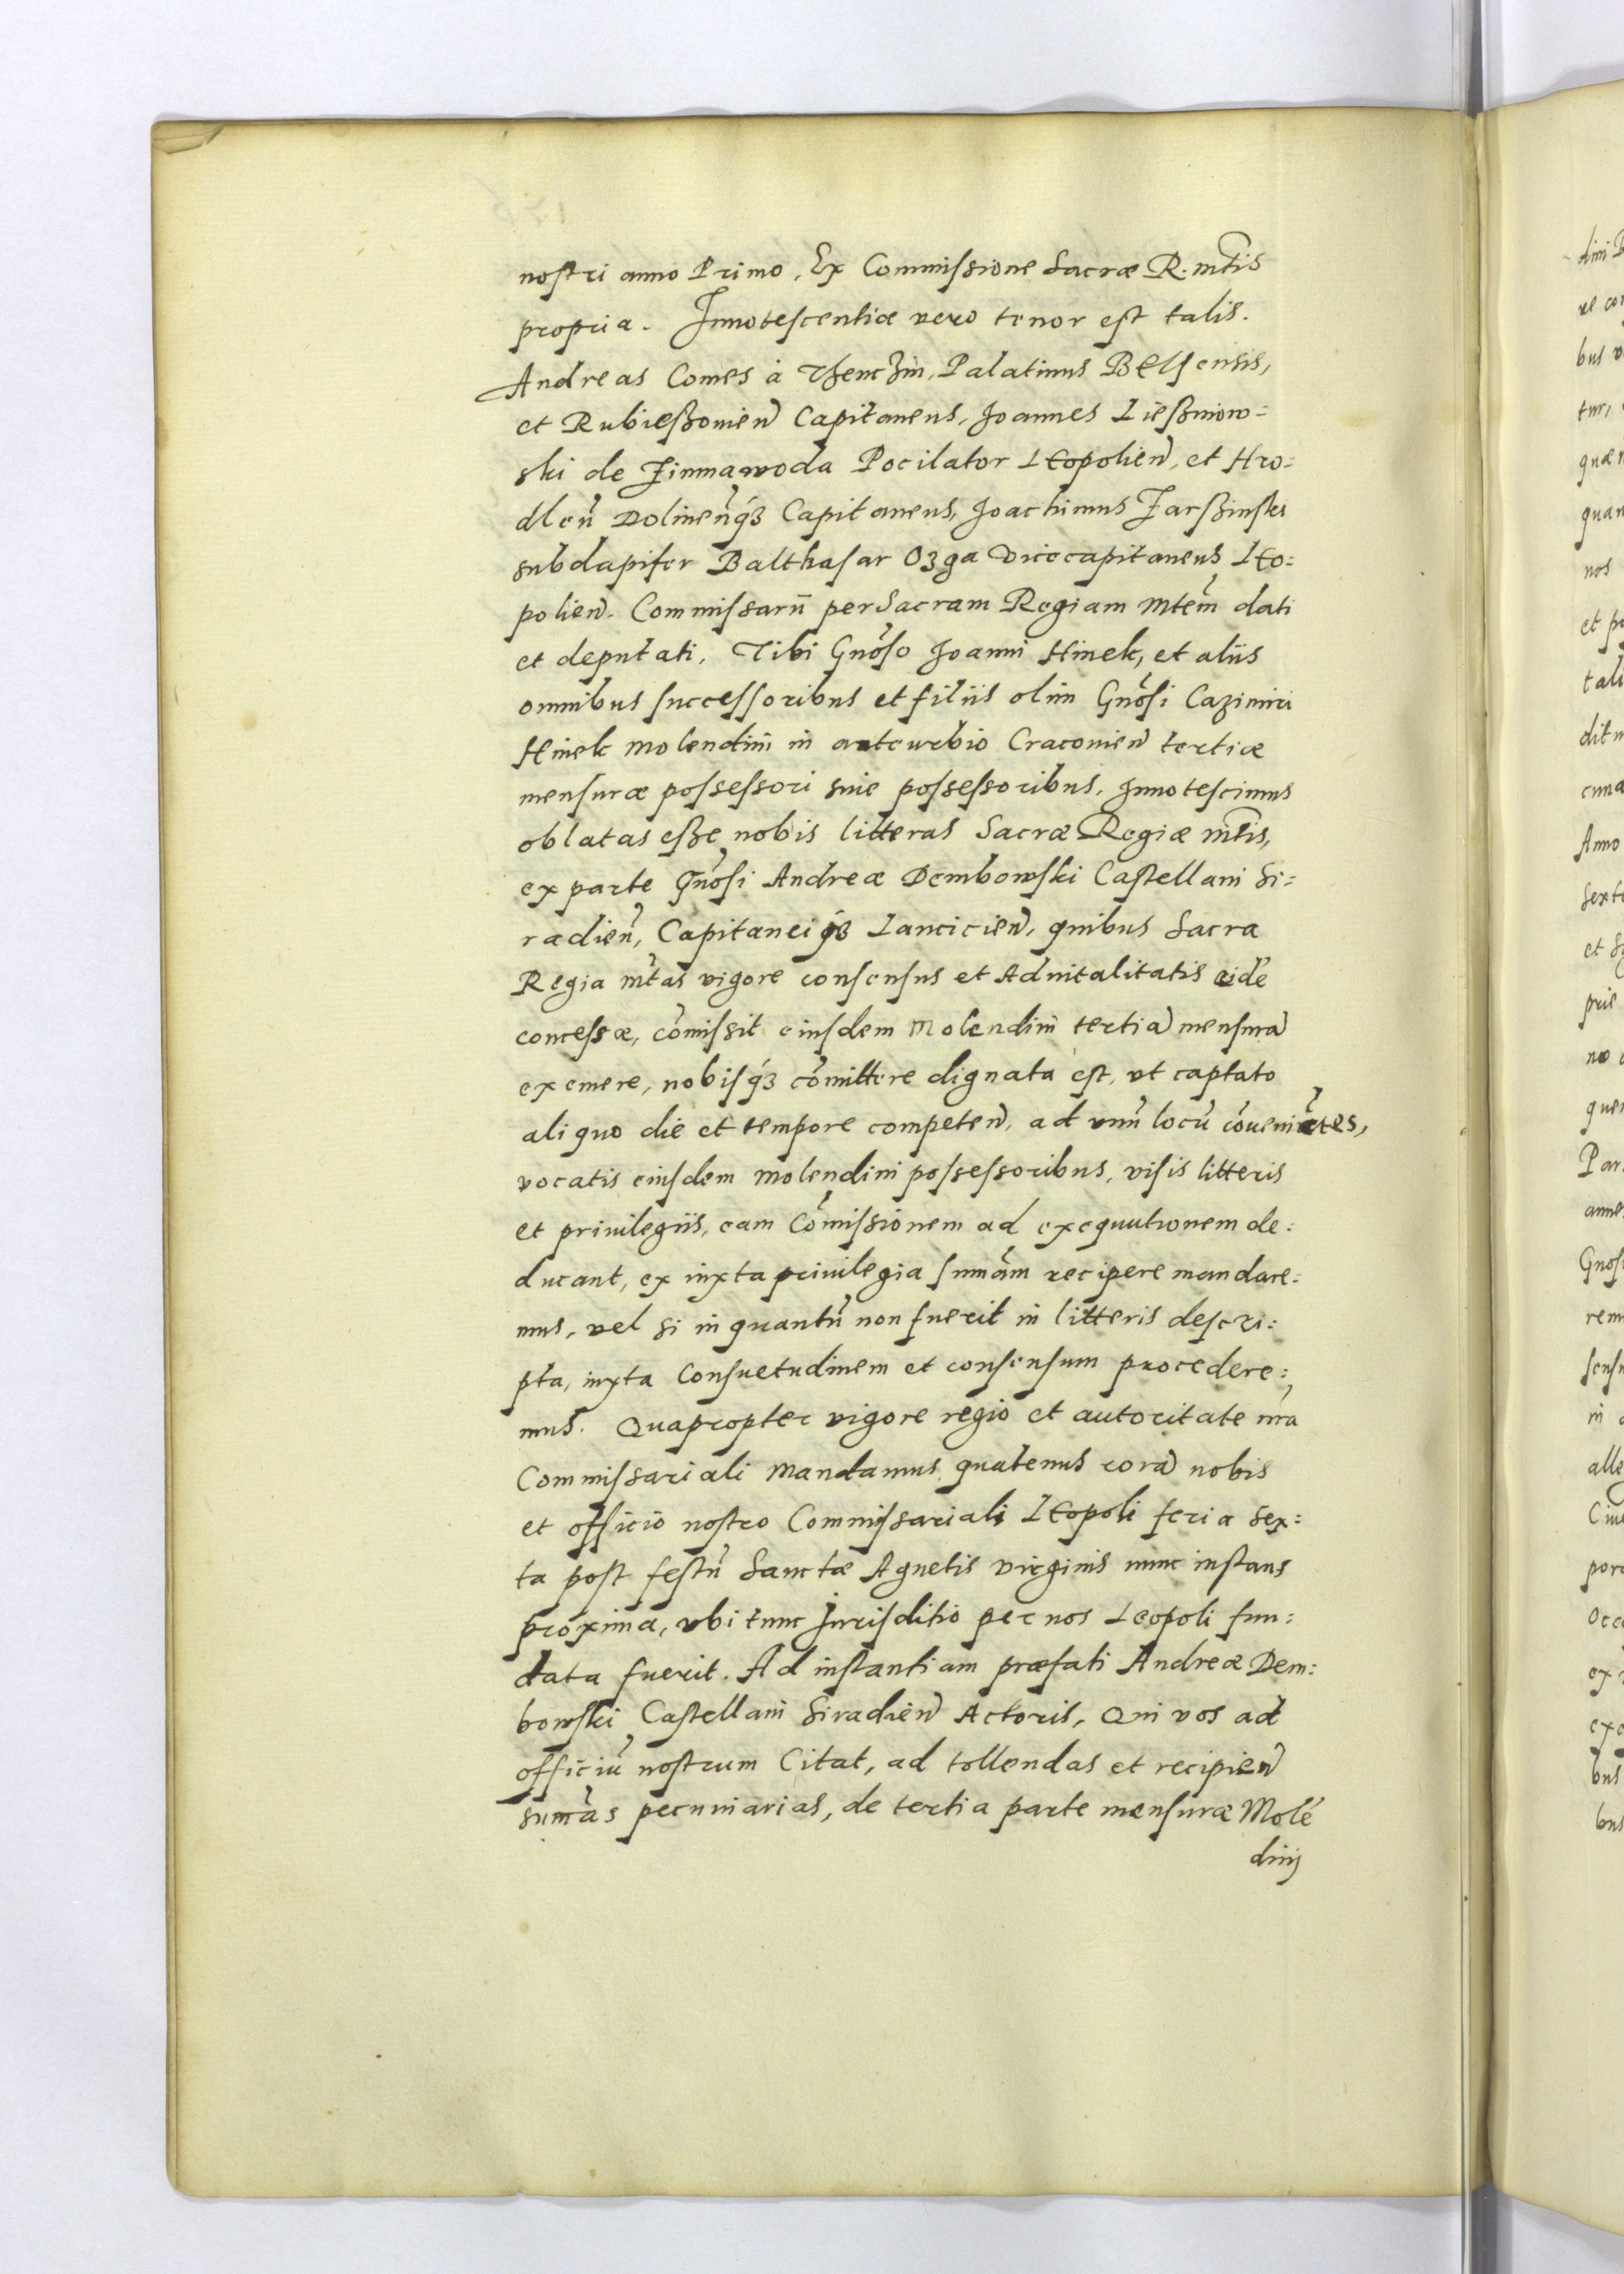 nostri anno Primo. Ex Commissione Sacræ R. mtis
propria. Innotescentiæ vero tenor est talis.
Andreas Comes à Thenczin, Palatinus Belsensis,
et Rubiesshovien Capitaneus, Joannes Liessniow=
ski de Zimnawoda Pocilator Leopolien, et Hro=
dlen Dolinenq3 Capitaneus, Joachimus Jarsinski
subdapifer Balthasar Ozga Vicecapitaneus Leo=
polien. Commissarii per Sacram Regiam Mtem dati
et deputati. Tibi Gnoso Joanni Hinek, et aliis
omnibus successoribus et filiis olim Gnosi Cazimiri
Hinek molendini in anteurbio Cracovien tertiæ
mensuræ possessori sive possessoribus. Innotescimus
oblatas esse nobis litteras Sacræ Regiæ mtis,
ex parte Gnosi Andreæ Dembowski Castellani Si=
radien, Capitanei q3 Lancicien, quibus Sacra
Regia mtas vigore consensus et Advitalitatis eidē
concessæ, cōmissit eiusdem Molendini tertiā mensurā
exemere, nobisq3 cōmittere dignata est, ut captato
aliquo die et tempore competen, ad unū locū cōvenietes,
vocatis eiusdem molendini possessoribus, visis litteris
et privilegiis, eam Cōmissionem ad exequutionem de:
ducant, ex iuxta privilegia sumām recipere mandare:
mus, vel si in quantū non fuerit in litteris descri:
pta, iuxta Consuetudinem et consensum procedere:
mus. Quapropter vigore regio et autoritate nrā
Commissariali mandamus quatenus corā nobis
et officio nostro Commissariali Leopoli feria sex:
ta post festū Sanctæ Agnetis Virginis nunc instans
proxima, ubi tunc Jurisditio per nos Leopoli fun:
data fuerit. Ad instantiam præfati Andreæ Dem:
bowski Castellani Siradien Actoris, Qui vos ad
officiū nostrum Citat, ad tollendas et recipien
sumās pecuniarias, de tertia parte mensuræ Molē
dinij